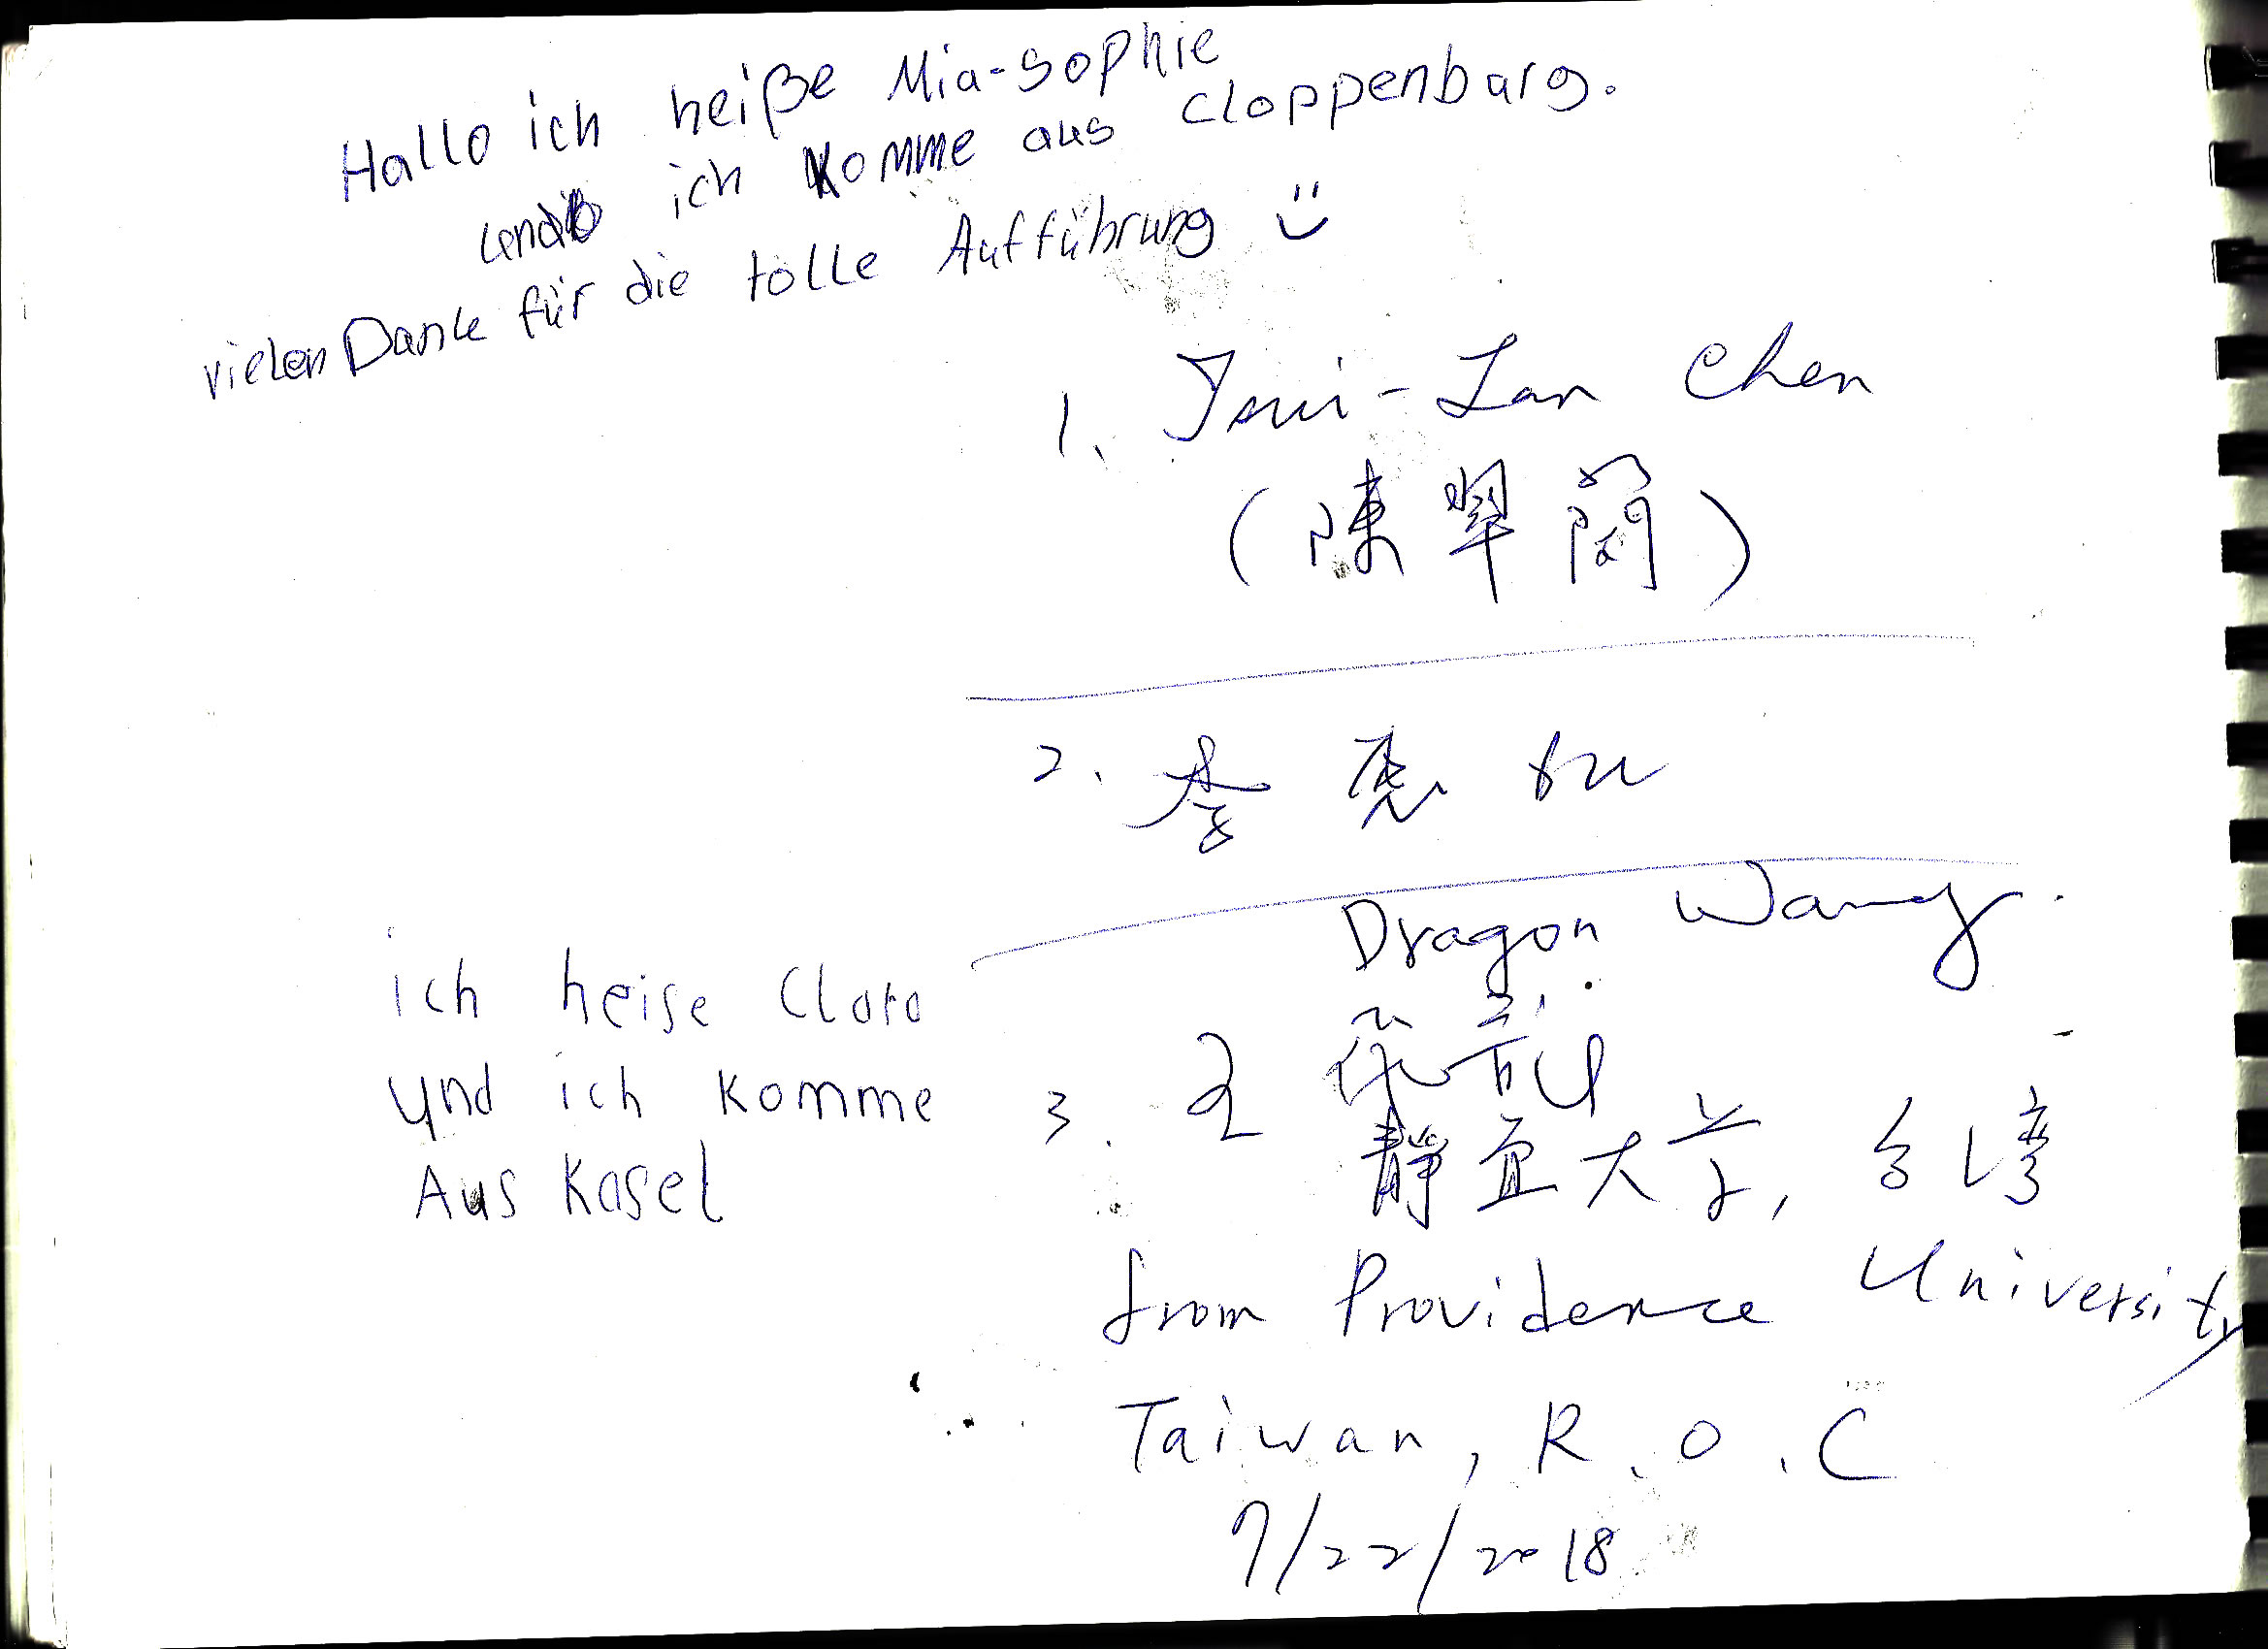 Hallo ich heiße Mia-sophie
und ich komme aus Cloppenbarg.
vielen Dank für die tolle Aufführung ü
1. Tsui-Lan Chen
(陳翠蘭)
2. 李惠如
Dragon Wang.
ich heise Clara
und ich komme
Aus Kasel
3. 王
靜宜大学, 台湾
from Providence University
Taiwan, R.O.C
7/22/2018